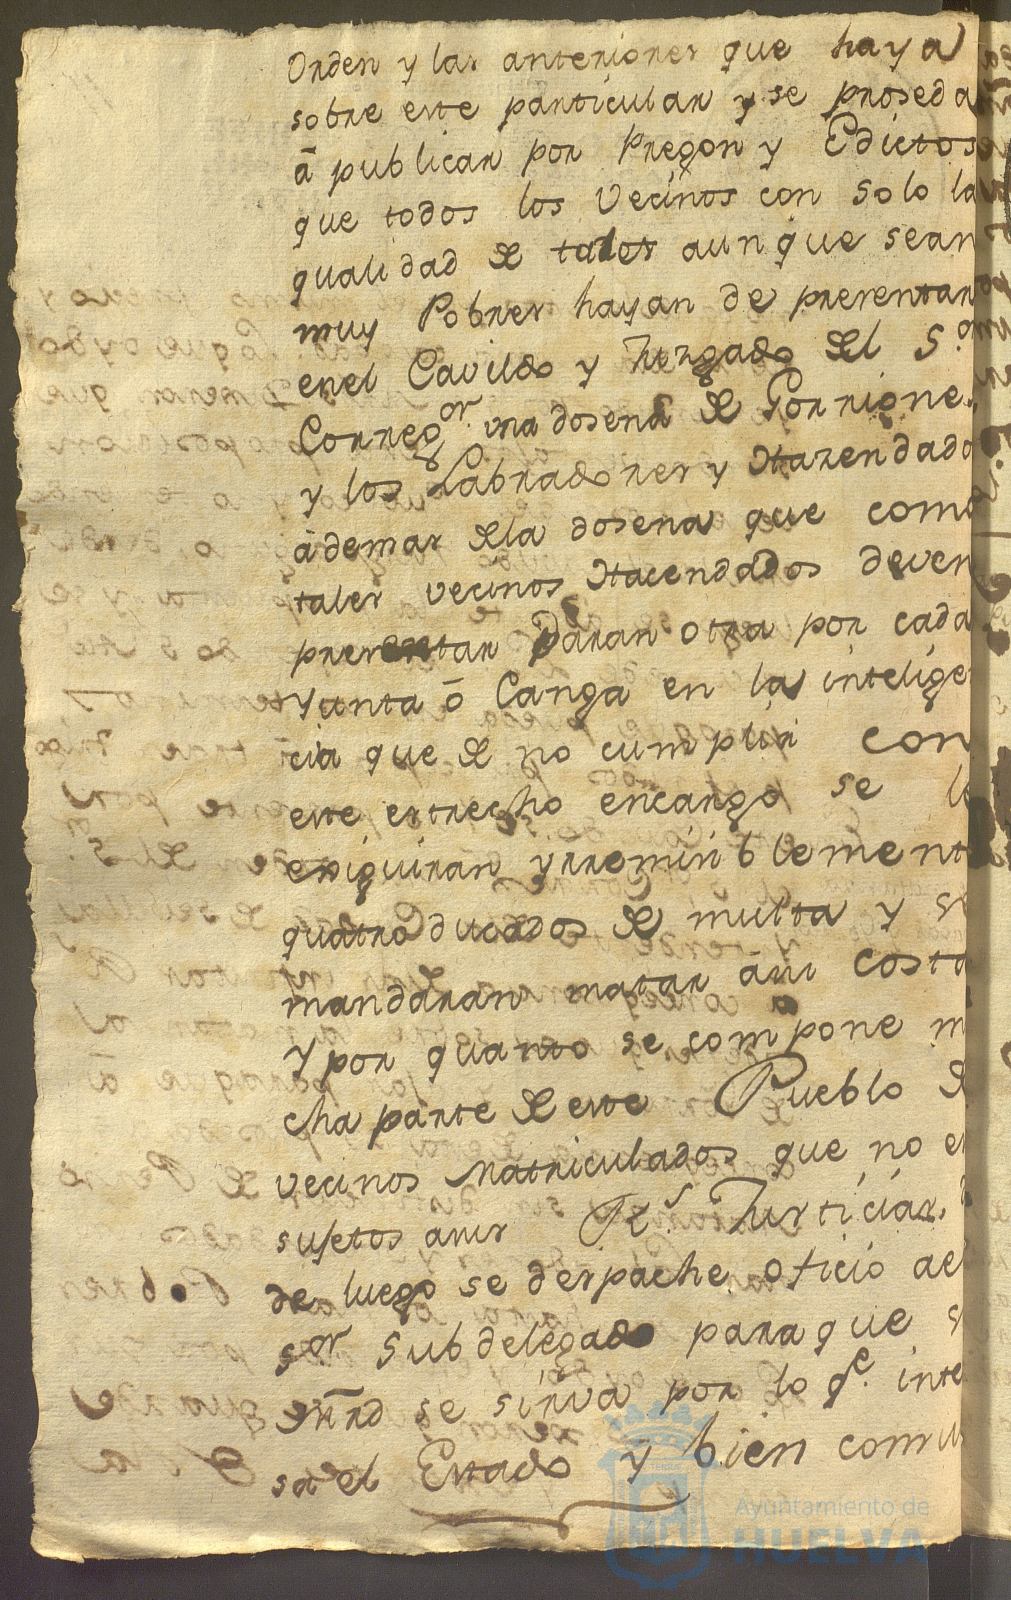 Orden y las anteriores que haya
sobre este particular y se proseda
â publicar por Pregon y Edictos
que todos los Vecinos con solo la
qualidad de tales aunque sean
muy Pobres hayan de presentar
en el Cavildo y Juzgado del S.or
Correg.or una dosena de Gorriones
y los Labradores y Hazendado
âdemas dela dosena que como
tales vecinos Hacendados deven
presentar Daran otra por cada
Yunta ô Canga en la intelige
cia que de no cumplir con
este estrecho encargo se le
exiguiran yrremisiblement
quatro ducados de multa y se
mandaran matar âsu costa
Y por quanto se compone m
cha parte de este Pueblo de
vecinos Matriculados que no e
sujetos a nrs R.s Justicias
de luego se despache oficio ael
s.or Subdelegado para que s
mrd se sirva por lo q.e inte
sa el Estado y bien comu
Ayuntamiento de
HUELVA